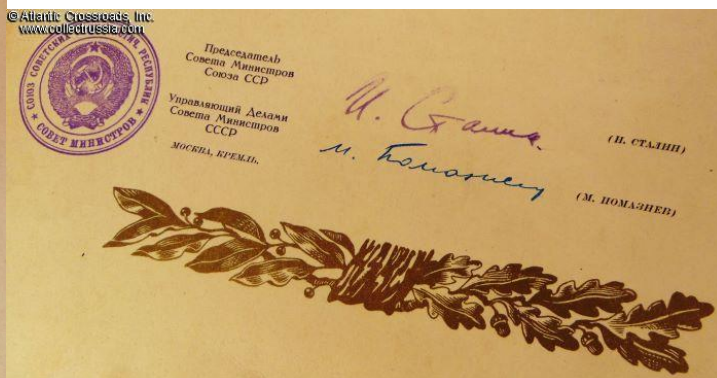 © Atlantic Crossroads, Inc.
www.collectrussia.com
СОЮЗ СОВЕТСКИХ РЕСПУБЛИК
СОВЕТ МИНИСТРОВ
Председатель
Совета Министров
Союза ССР
И. Сталин.
(И. СТАЛИН)
Управляющий Делами
Совета Министров
СССР
м. Помазнев
(М. ПОМАЗНЕВ)
МОСКВА, КРЕМЛЬ.